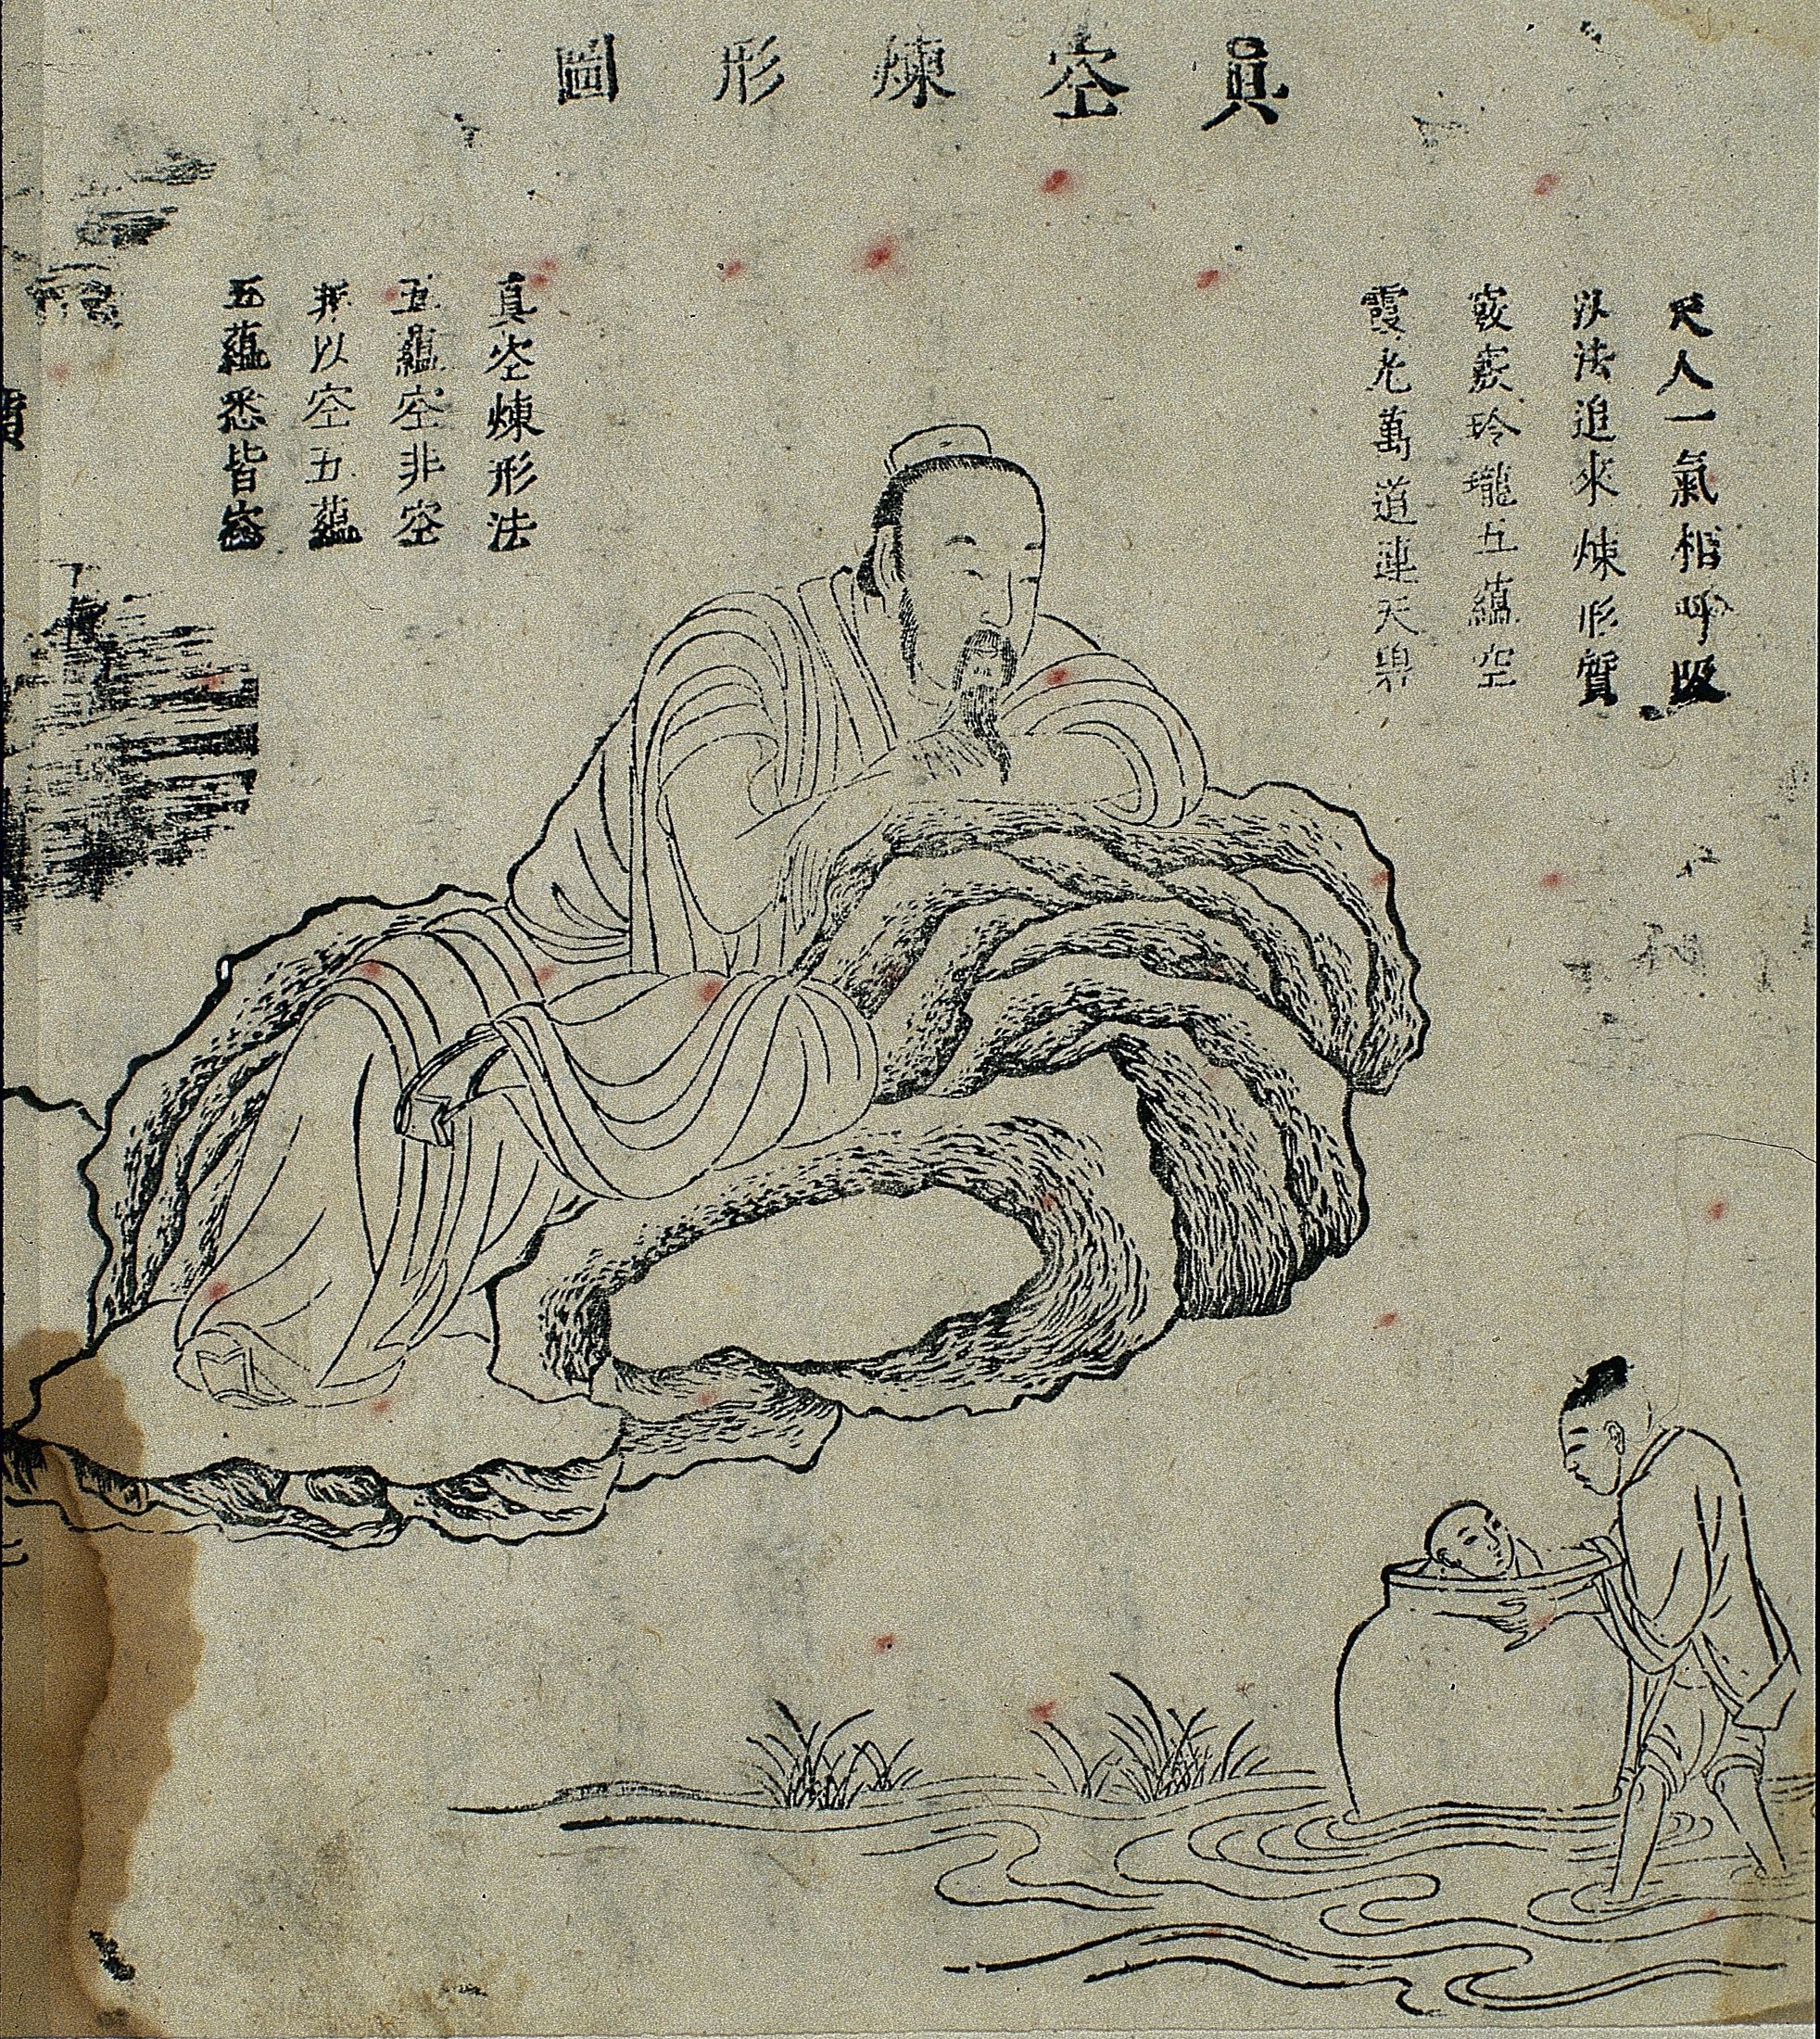 真空煉形圖
天人一氣相呼吸
以法追來煉形質
竅竅玲瓏五蘊空
霞光萬道連天
真空煉形法
五蘊空非空
非以空五蘊
五蘊悉皆空